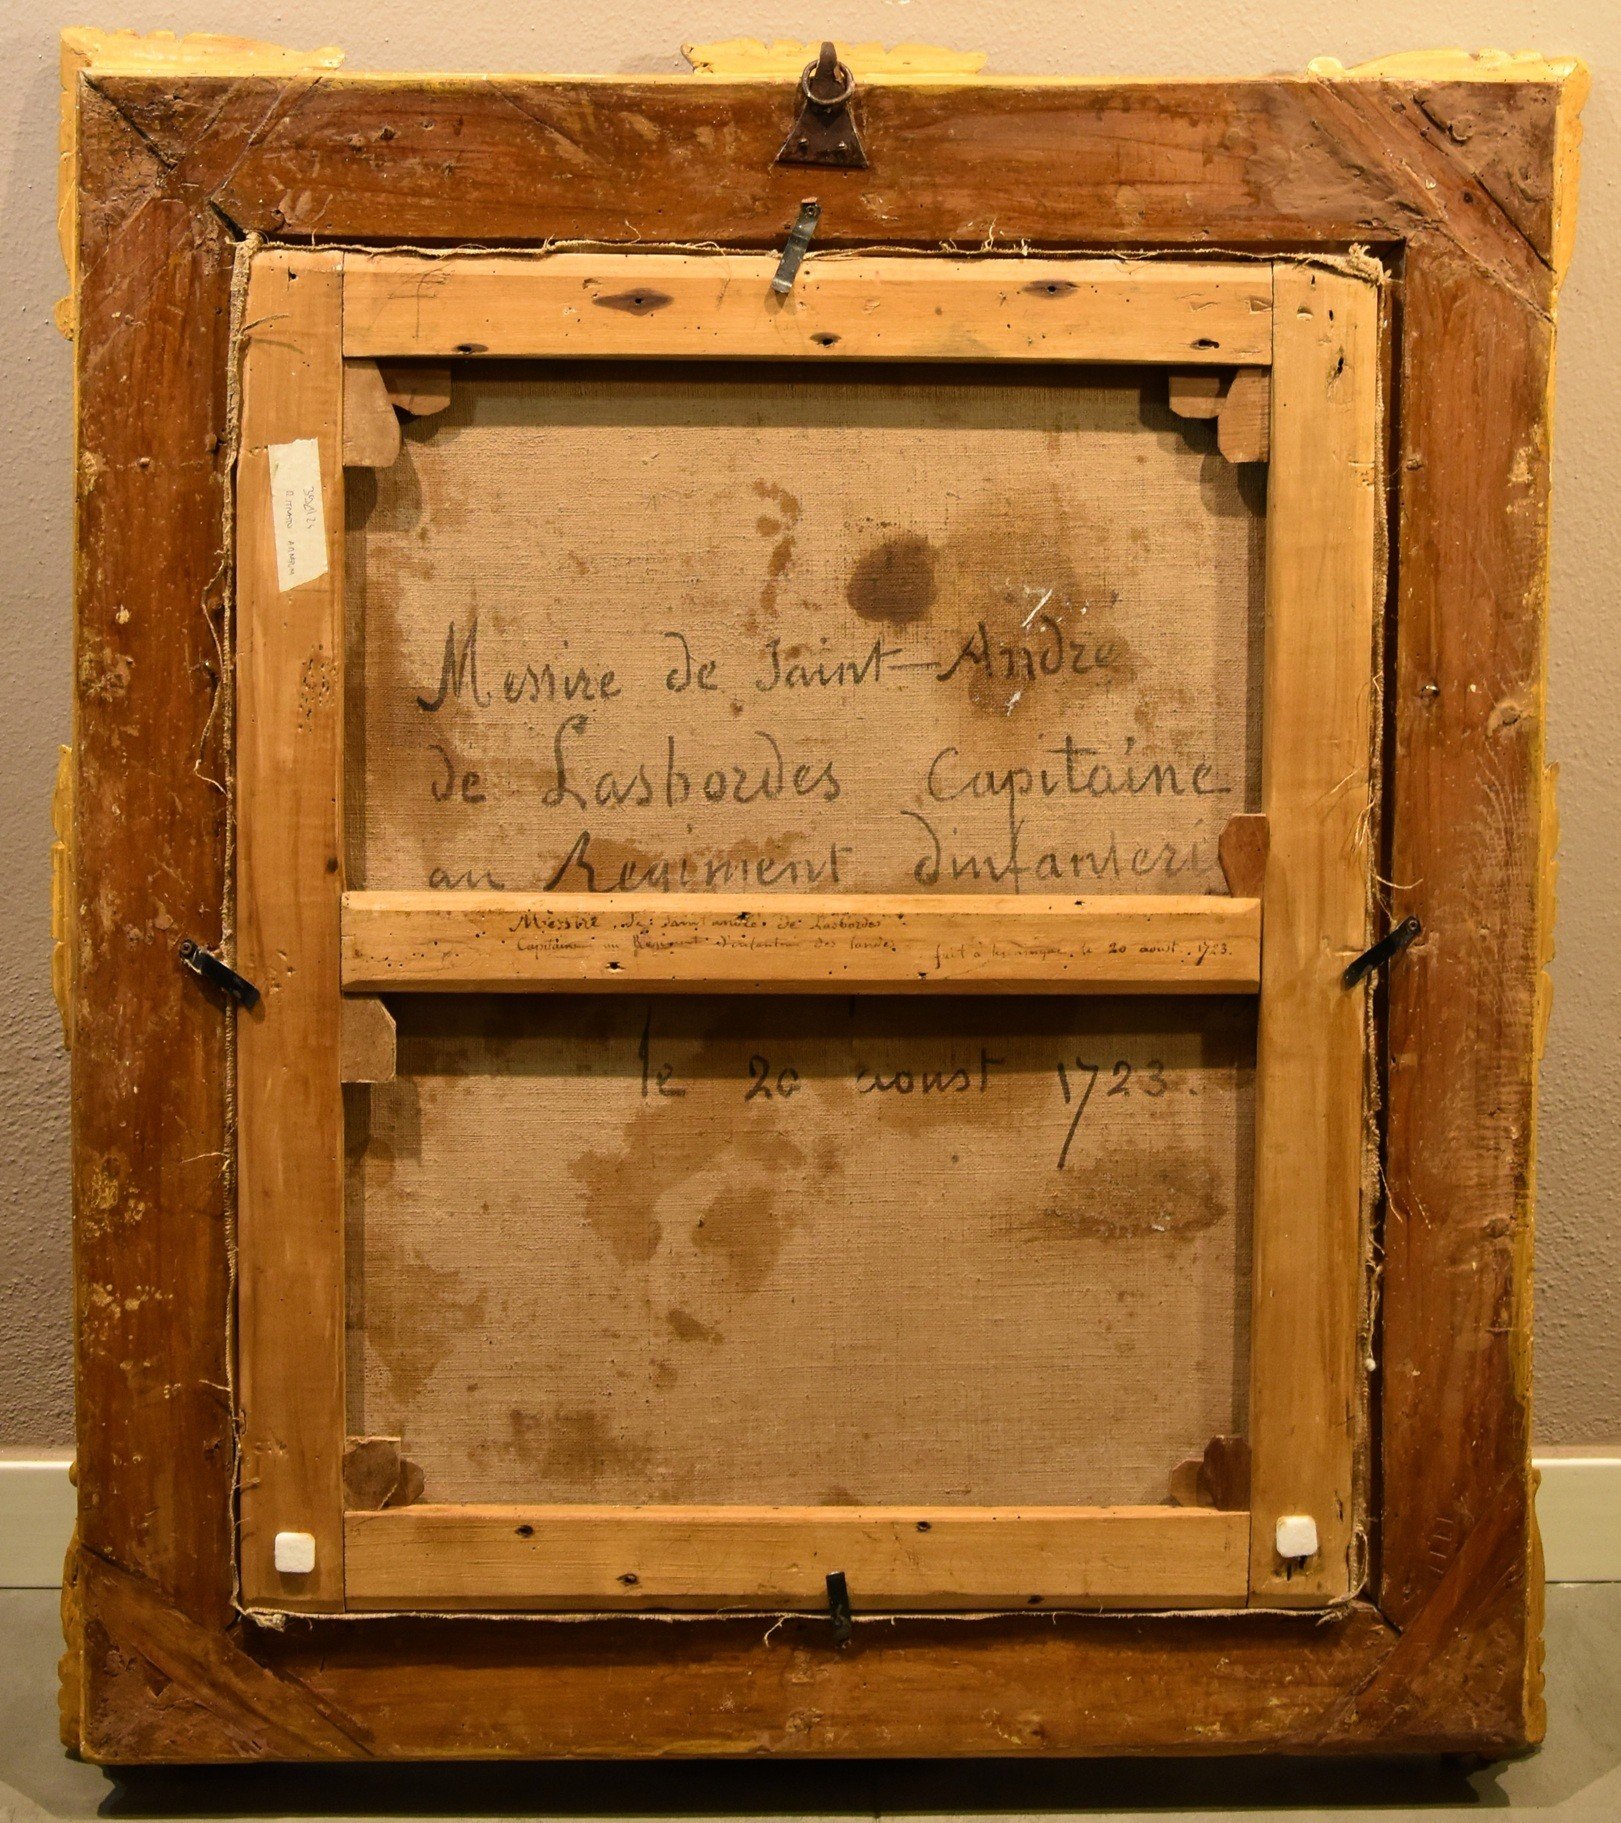 Messire de Saint-Andre
de Lasbordes Capitaine
au Regiment dinfanteri
Messire de Saint andre de Lasbordes
Capitaine au Regiment d'infanterie des landes fait à le 20 aoust 1723.
le 20 aoust 1723.